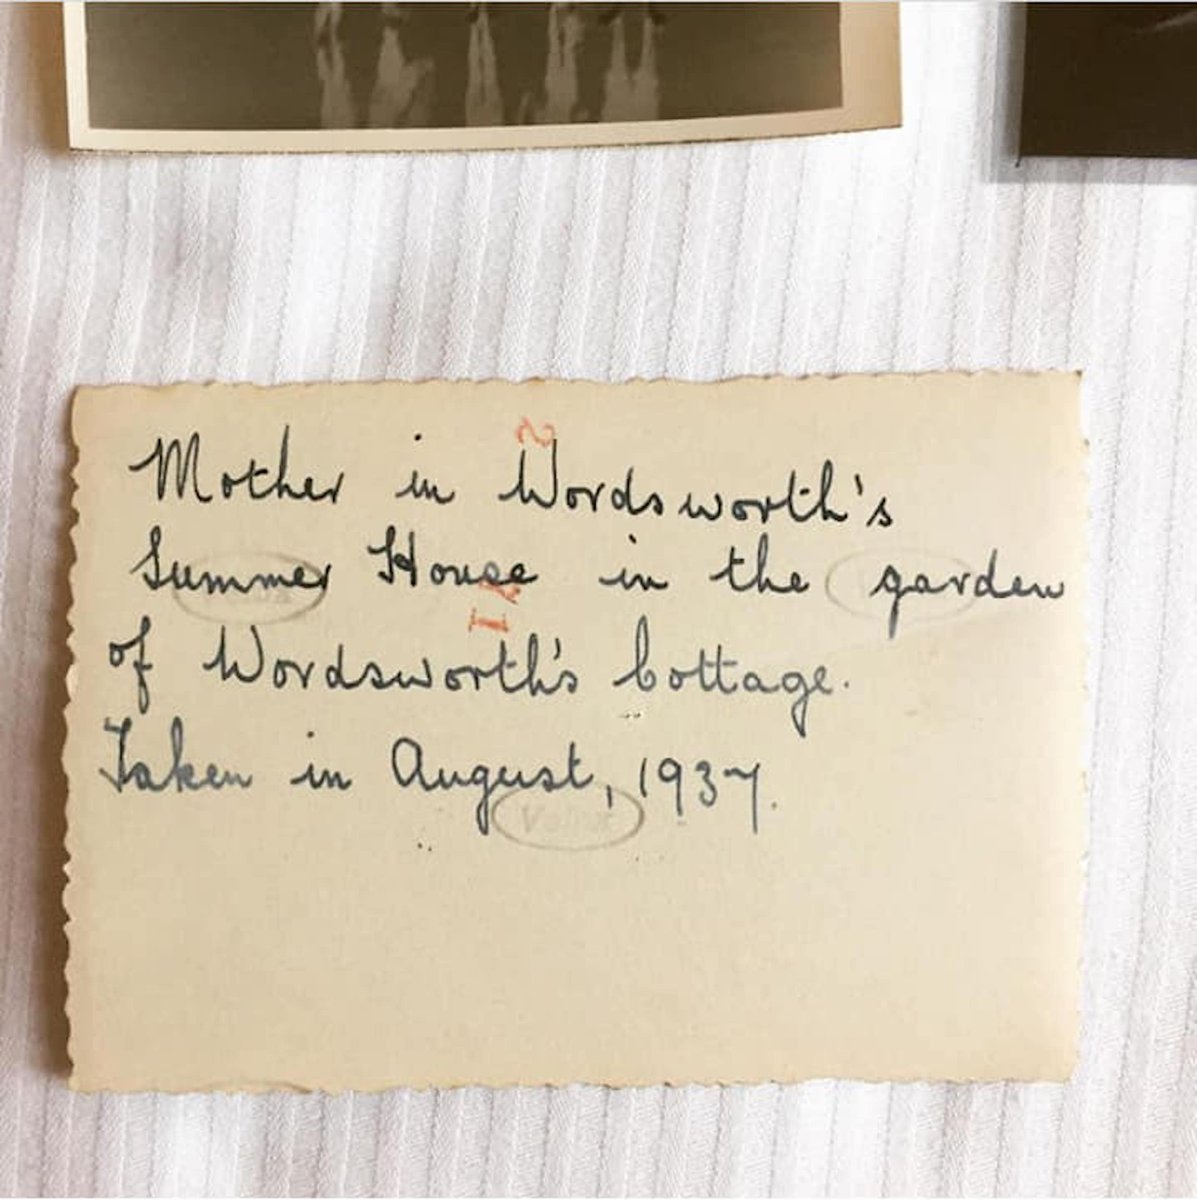 Mother in Wordsworth's
Summer House in the garden
of Wordsworth's Cottage.
Taken in August, 1937.
Velox